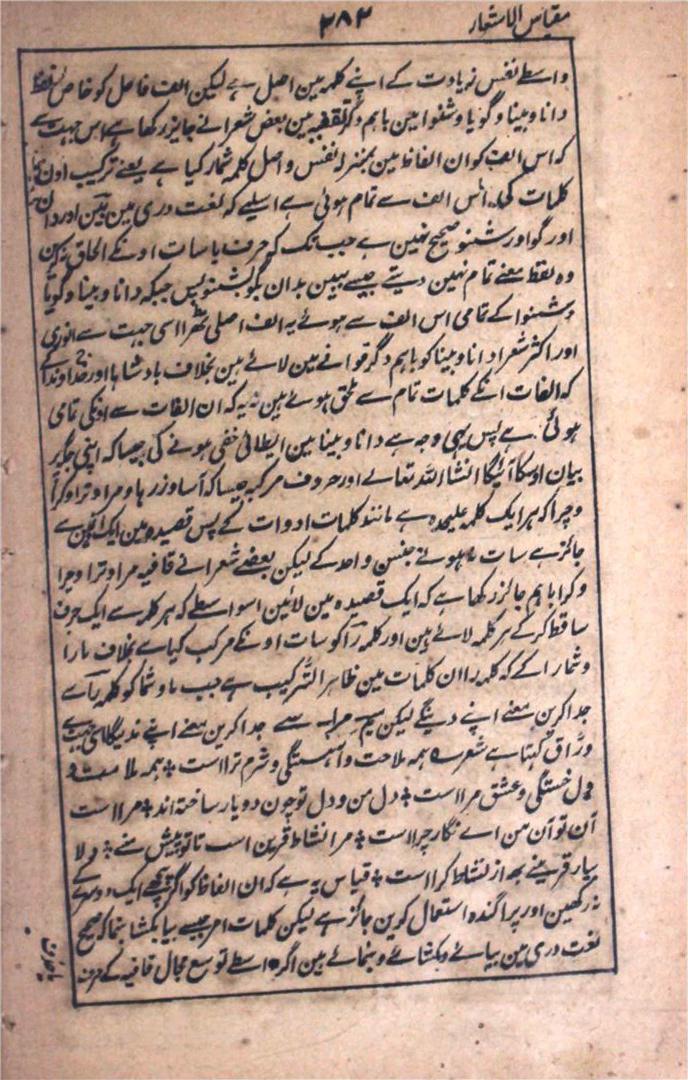 مقیاس الاشعار
۲۸۲
واسطے نفس زیادت کے اپنے کلمہ مین اصل ہے لیکن الف فاعل کو خاص لفظ
دانا و بینا و گویا و شنوا مین باہم دگر قافیہ مین بعض شعرا نے جایز رکھا ہے اس جہت سے
کہ اس الف کو ان الفاظ مین بمنزلہ نفس و اصل کلمہ شمار کیا ہے یعنے ترکیب اون
کلمات کی اس الف سے تمام ہوئی ہے اسلیے کہ لغت دری مین بین اور دان
اور گو اور شنو صحیح نہین ہے جب تک کہ حرف با سات اونکے الحاق نہ کرین
وہ لفظ معنے تمام نہین دیتے جیسے ببین بدان بگو بشنو پس جبکہ دانا و بینا و گویا
و شنوا کے تمامی اس الف سے ہوئے یہ الف اصلی ٹھرا اسی جہت سے انوری
اور اکثر شعرا دانا و بینا کو باہم دگر قوافے مین لائے ہین بخلاف بادشاہا اور خداوندا کے
کہ الفات انکے کلمات تمام سے ملحق ہوئے ہین نہ یہ کہ ان الفات سے اونکی تمامی
ہوئی ہے پس یہی وجہ ہے دانا و بینا مین ایطائے خفی ہونے کی جیسا کہ اپنی جگہ پر
بیان اوسکا آئیگا انشا اللہ تعالے اور حروف مرکبہ جیسا کہ آسا و زرہا و مرا و ترا و کرا
و چرا کہ ہر ایک کلمہ علیحدہ ہے مانند کلمات ادوات کے پس قصیدہ مین ایک انمین سے
جائز ہے سات نہونے جنس واحد کے لیکن بعضے شعرا نے قافیہ مرا و ترا و چرا
و کرا باہم جائز رکھا ہے کہ ایک قصیدہ مین لائین اسواسطے کہ ہر کلمہ سے ایک حرف
ساقط کر کے سر کلمہ لائے ہین اور کلمہ را کو سات اونکے مرکب کیا ہے بخلاف مارا
و شمارا کے کہ کلمہ را ان کلمات مین ظاہر الترکیب ہے جب ما و شما کو کلمہ را سے
جدا کرین معنے اپنے دینگے لیکن میم مرا سے جدا کرین معنے اپنے ندیگا اسی جہت سے
وراق کہتا ہے شعر ہمہ ملاحت و آہستگی و شرم تراست ہمہ ملامت و
دل خستگی و عشق مراست دل من و دل تو چون دو یار ساختہ اند مراست
آن تو آن من اے نگار چراست مرا نشاط قرین است تا تو پیش منے ولا
بیار قرینے بہ از نشاط کراست قیاس یہ ہے کہ ان الفاظ کو اگر پیچھے ایک دوسرے کے
نہ رکھین اور پراگندہ استعمال کرین جائز ہے لیکن کلمات امر جیسے بیا بکشا بنما کہ صحیح
لغت دری مین بیائے و بکشائے و بنمائے ہین اگر واسطے توسع مجال قافیہ کے حرف